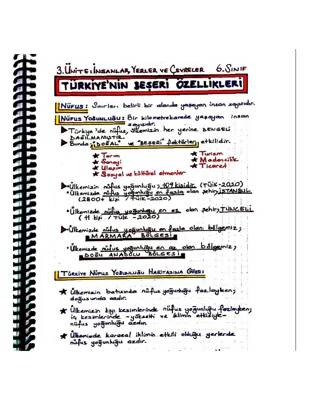 3. ÜNİTE: İNSANLAR, YERLER VE ÇEVRELER 6. SINIF
TÜRKİYE'NİN BEŞERİ ÖZELLİKLERİ
NÜFUS: Sınırları belirli bir alanda yaşayan insan sayısıdır.
NÜFUS YOĞUNLUĞU: Bir kilometrekarede yaşayan insan
sayısıdır.
Türkiye'de nüfus, ülkemizin her yerine DENGELİ
DAĞILMAMIŞTIR.
Bunda "DOĞAL" ve "BEŞERİ" faktörler etkilidir.
★ Tarım ★ Turizm
★ Sanayi ★ Madencilik
★ Ulaşım ★ Ticaret
★ Sosyal ve kültürel etmenler
Ülkemizin nüfus yoğunluğu; 109 kişidir. (TÜİK-2020)
Ülkemizde nüfus yoğunluğu en fazla olan şehir; İSTANBUL
(2800+ kişi / TÜİK-2020)
Ülkemizde nüfus yoğunluğu en az olan şehir; TUNCELİ
(11 kişi / TÜİK-2020)
Ülkemizde nüfus yoğunluğu en fazla olan bölgemiz;
"MARMARA BÖLGESİ"
Ülkemizde nüfus yoğunluğu en az olan bölgemiz;
"DOĞU ANADOLU BÖLGESİ"
TÜRKİYE NÜFUS YOĞUNLUĞU HARİTASINA GÖRE;
★ Ülkemizin batısında nüfus yoğunluğu fazlayken;
doğusunda azdır.
★ Ülkemizin kıyı kesimlerinde nüfus yoğunluğu fazlayken;
iç kesimlerinde -yükselti ve iklimin etkisiyle-
nüfus yoğunluğu azdır.
★ Ülkemizde karasal iklimin etkili olduğu yerlerde
nüfus yoğunluğu azdır.